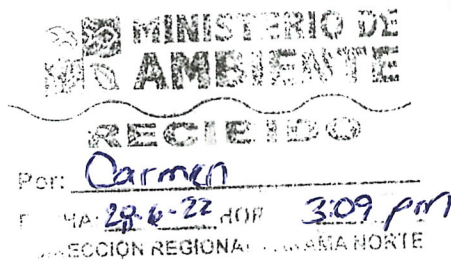 MINISTERIO DE
AMBIENTE
RECIBIDO
Por: Carmen
28-6-22 3:09 pm
DIRECCIÓN REGIONAL PANAMA NORTE